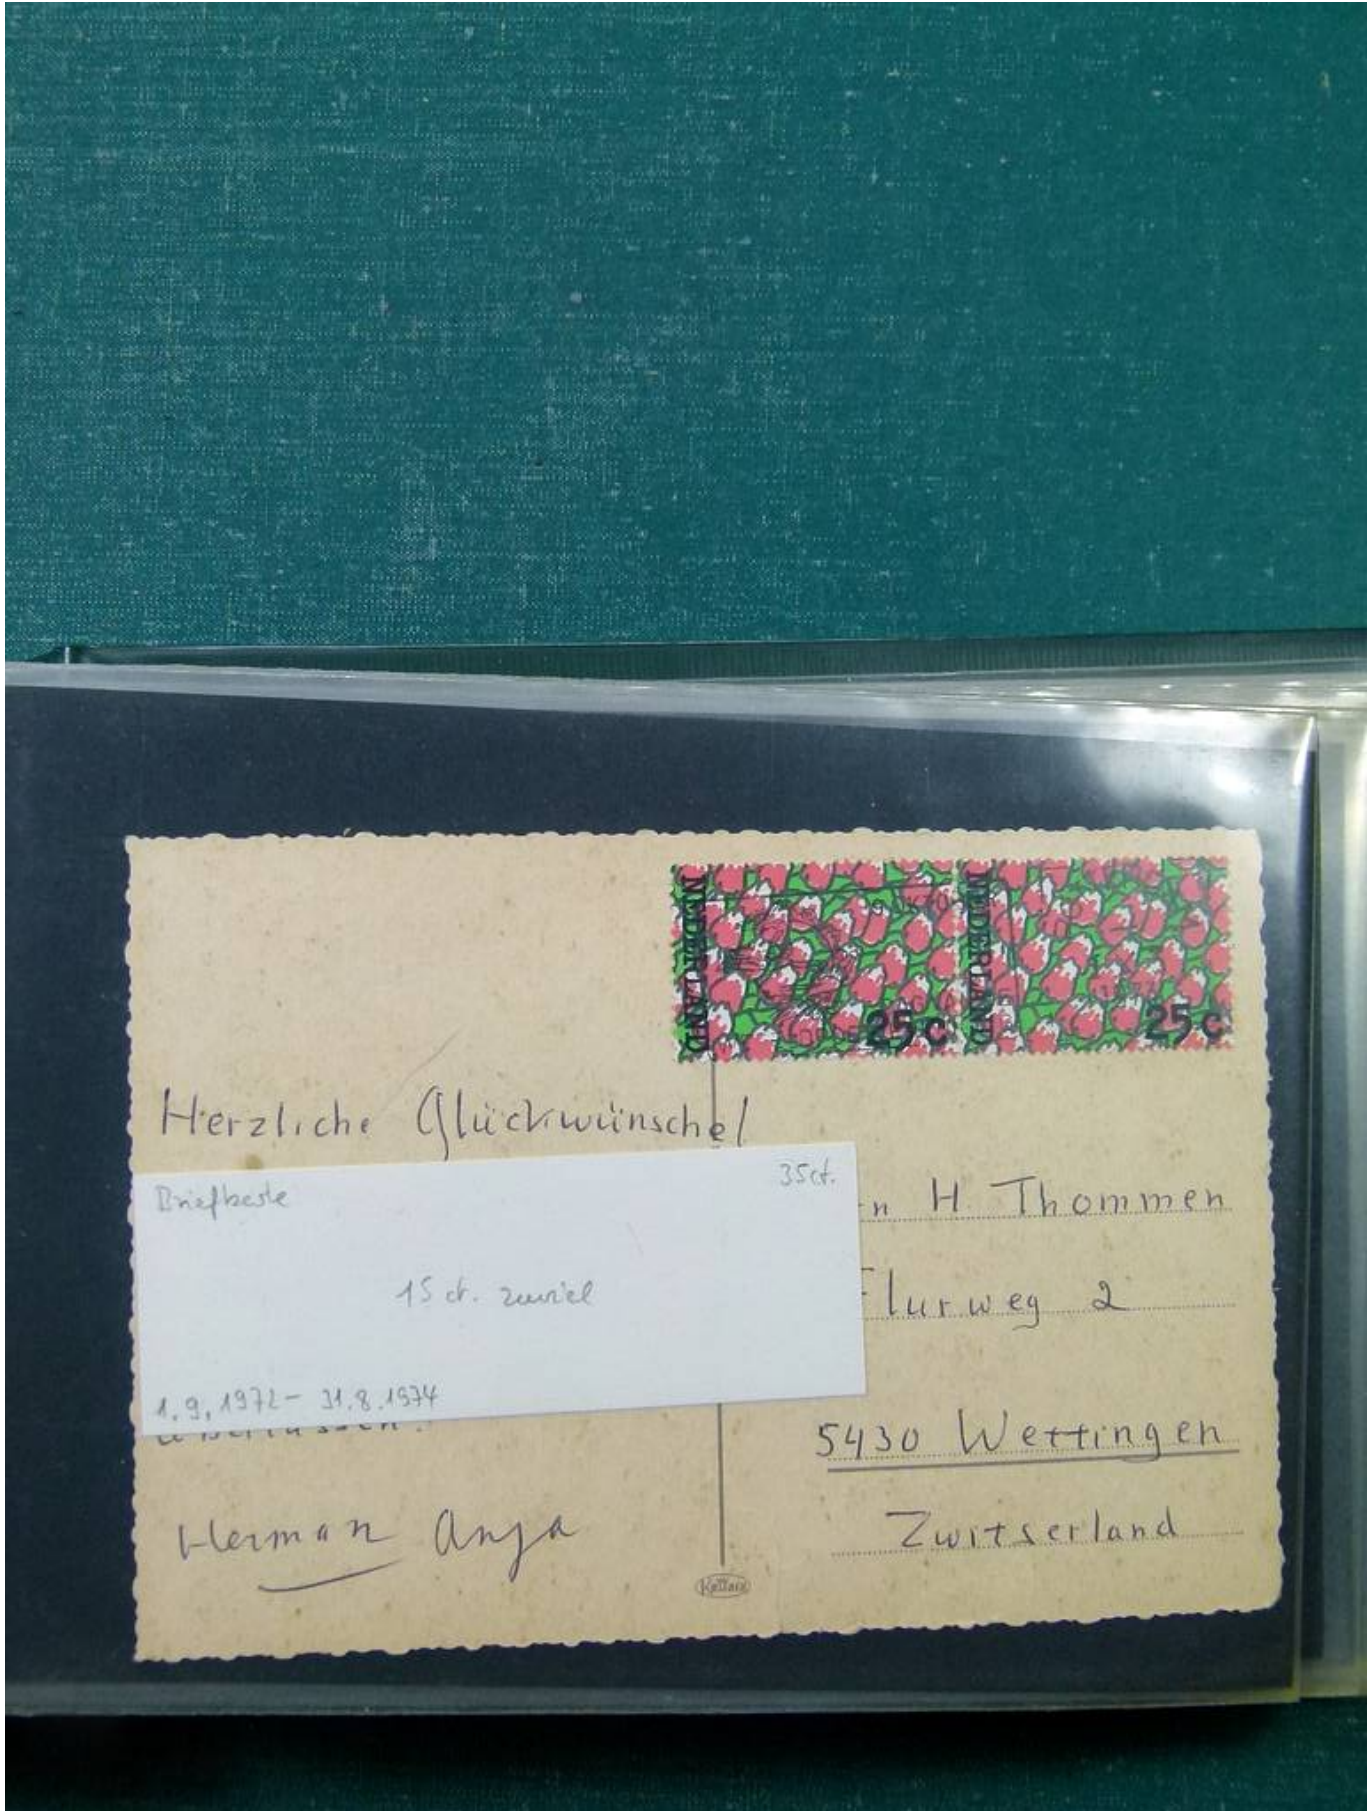 NEDERLAND
25 c
NEDERLAND
25 c
Herzliche Glückwünsche!
35 ct.
15 ct. zuviel
1.9.1972 - 31.8.1974
n H. Thommen
Flurweg 2
5430 Wettingen
Zwitserland
Herman Anja